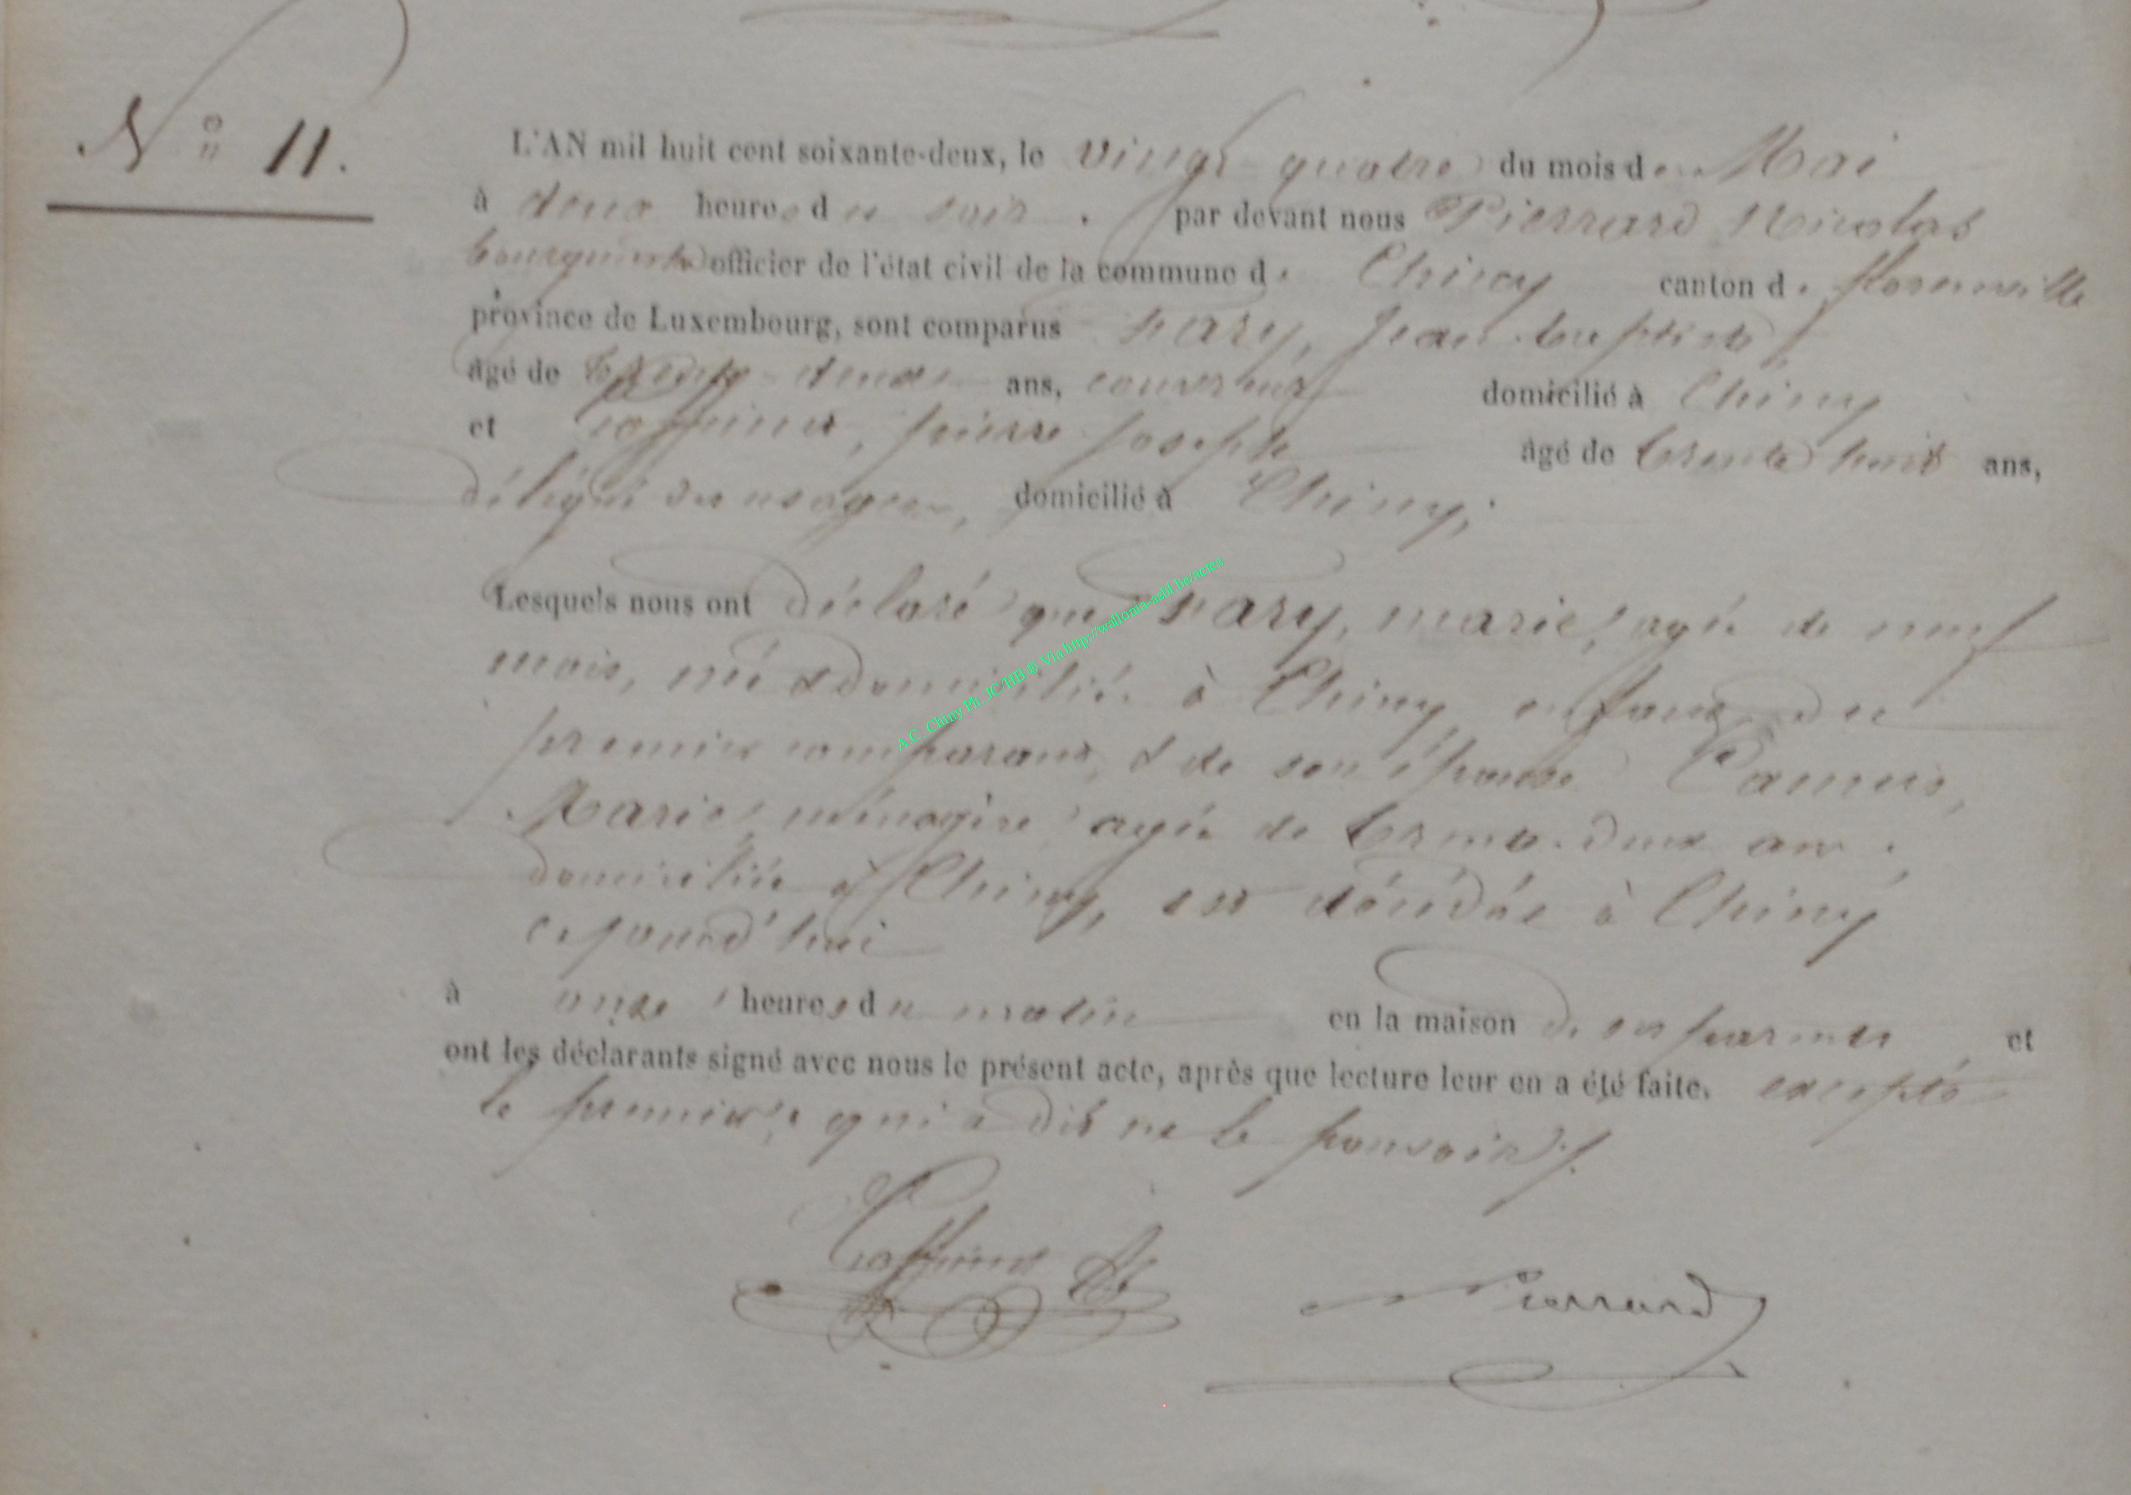 N° 11.
L'AN mil huit cent soixante-deux, le vingt quatre du mois de Mai
à deux heures du soir. par devant nous Pierrard Nicolas
bourgmestre officier de l'état civil de la commune de Chiny canton de florenville
province de Luxembourg, sont comparus hary, Jean-baptiste
âgé de trente-deux ans, couvreur domicilié à Chiny
et Goffinet, pierre joseph âgé de trente huit ans,
délégué des usagers, domicilié à Chiny,
Lesquels nous ont déclaré que hary, marie, agée de neuf
mois, née et domiciliée à Chiny enfant du
premier comparant, et de son épouse Camus,
Marie, ménagère agée de trente-deux ans,
domiciliée à Chiny, est décédée à Chiny
cejourd'hui
à onze heures du matin en la maison de ses parents et
ont les déclarants signé avec nous le présent acte, après que lecture leur en a été faite. excepté
le premier, qui a dit ne le pouvoir.
Goffinet
Pierrard
A.C. Chiny Ph. JC/HB © Via http://wallonia-asbl.be/actes